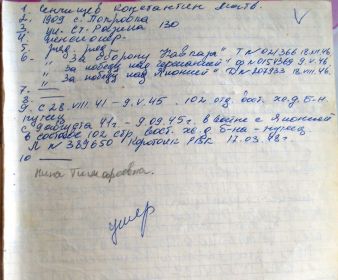 1. Сенчищев Константин Матв.
2. 1909 с. Покровка
3. ул. Ст. Разина 130
4. пенсионер-
5. ряд. ряд.
6- "За оборону Кавказа" Т № 021366 18.III.46.
"За победу над Германией" Ф № 0154369 9.V.46
"За победу над Японией" D № 207933 18.VIII.46.
7. —
8. —
9. с 28.VIII.41 - 9.V.45. 102 отд. вост. хо.д. Б-н.
с 9 августа - 9.09.45г. в войне с Японией
в составе 102 стр. вост. хо. д. Б-на -
Л № 389650 РВК 17.03.48г.
10 —
Нина Тимофровна.
умер